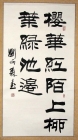 櫻華紅陌上柳
葉綠池邊